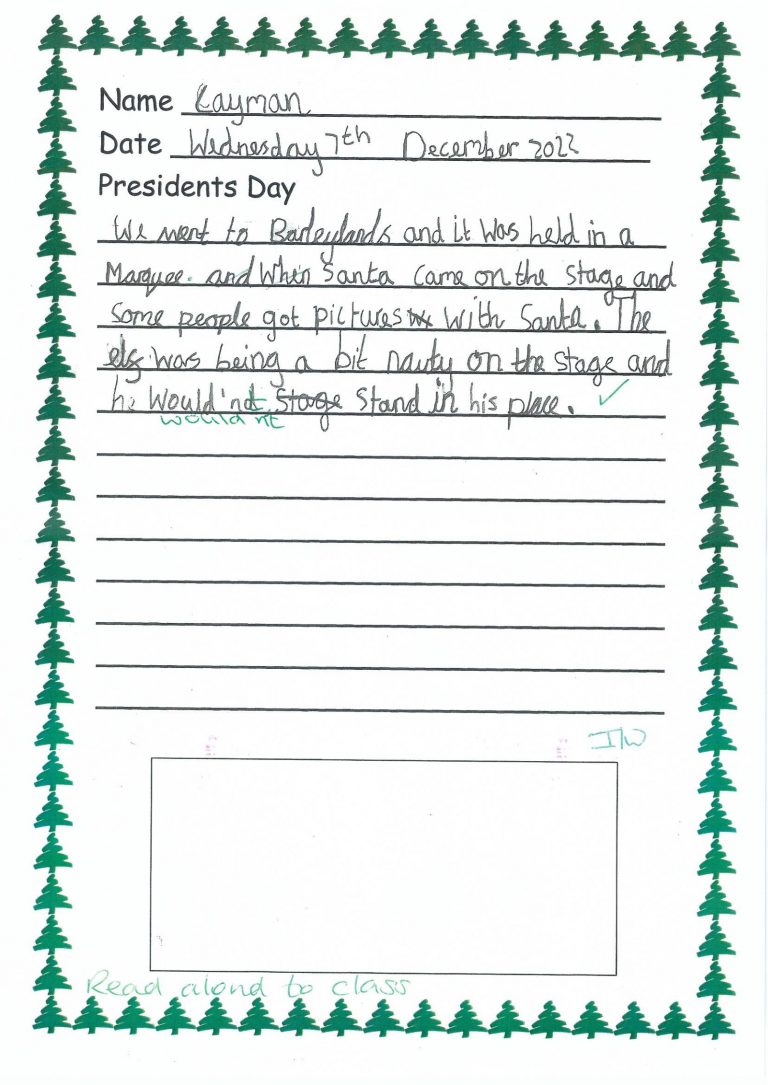 Name Kayman
Date Wednesday 7th December 2022
Presidents Day
We went to Barleylands and it was held in a
Marquee. and when Santa came on the stage and
some people got pictures with Santa. The
elf was being a bit nauty on the stage and
he would'nt stage stand in his place.
wouldn't
I/W
Read aloud to class